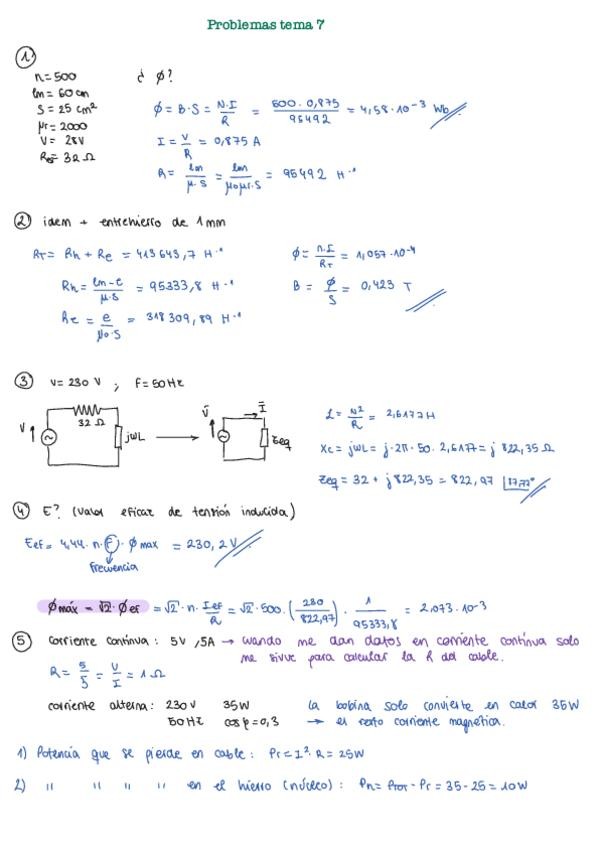 Problemas tema 7
① n = 500 ¿ Φ?
lm = 60 cm
S = 25 cm²
μr = 2000
V = 28V
Rb = 32 Ω
Φ = B·S = N·I / R = 500 · 0,875 / 95492 = 4,58·10⁻³ Wb
I = V/R = 0,875 A
R = lm / μ·S = lm / μo μr·S = 95492 H⁻¹
② idem + entrehierro de 1mm
RT = Rh + Re = 413643,7 H⁻¹
Rh = lm-e / μ·S = 95333,8 H⁻¹
Re = e / μo·S = 318309,89 H⁻¹
Φ = n·I / RT = 1,057·10⁻⁴
B = Φ/S = 0,423 T
③ V = 230 V ; F = 50Hz
V 32 Ω jωL V̄ Ī Zeq
L = N²/R = 2,6177H
Xc = jωL = j·2π·50·2,6177 = j 822,35 Ω
Zeq = 32 + j 822,35 = 822,97
④ E? (Valor eficaz de tensión inducida)
Eef = 4,44·n·F·Φmax = 230,2 V
frecuencia
Φmáx = √2·Φef = √2·n·Ief/R = √2·500·(230/822,97)·1/95333,8 = 2,073·10⁻³
⑤ corriente continua: 5V, 5A → cuando me dan datos en corriente continua solo
me sirve para calcular la R del cable.
R = 5/5 = V/I = 1 Ω
corriente alterna: 230V 35W la bobina solo convierte en calor 35W
50Hz cosφ = 0,3 → el resto corriente magnética.
1) Potencia que se pierde en cable: Pr = I²·R = 25W
2) " " " " en el hierro (núcleo): Pn = PTOT - Pr = 35 - 25 = 10W